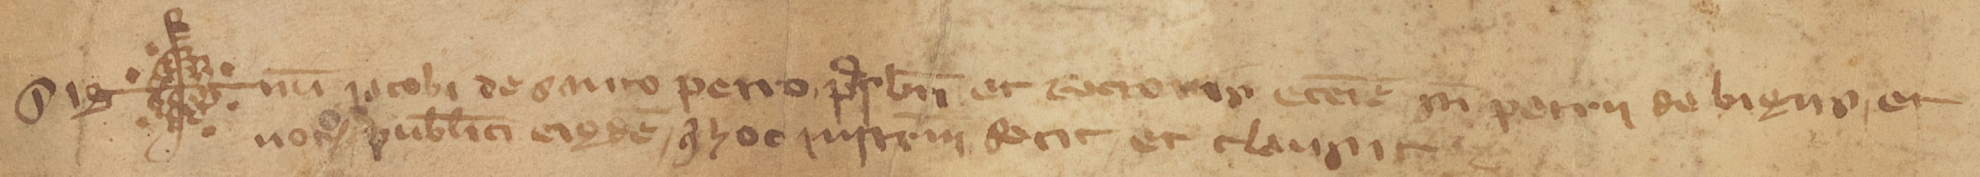 Sig num jacobi de Sancto petro, prsbri et Rectoris ecclie sci petri de bigues, et
notarii publici eiusde, q hoc instrm fecit et clausit